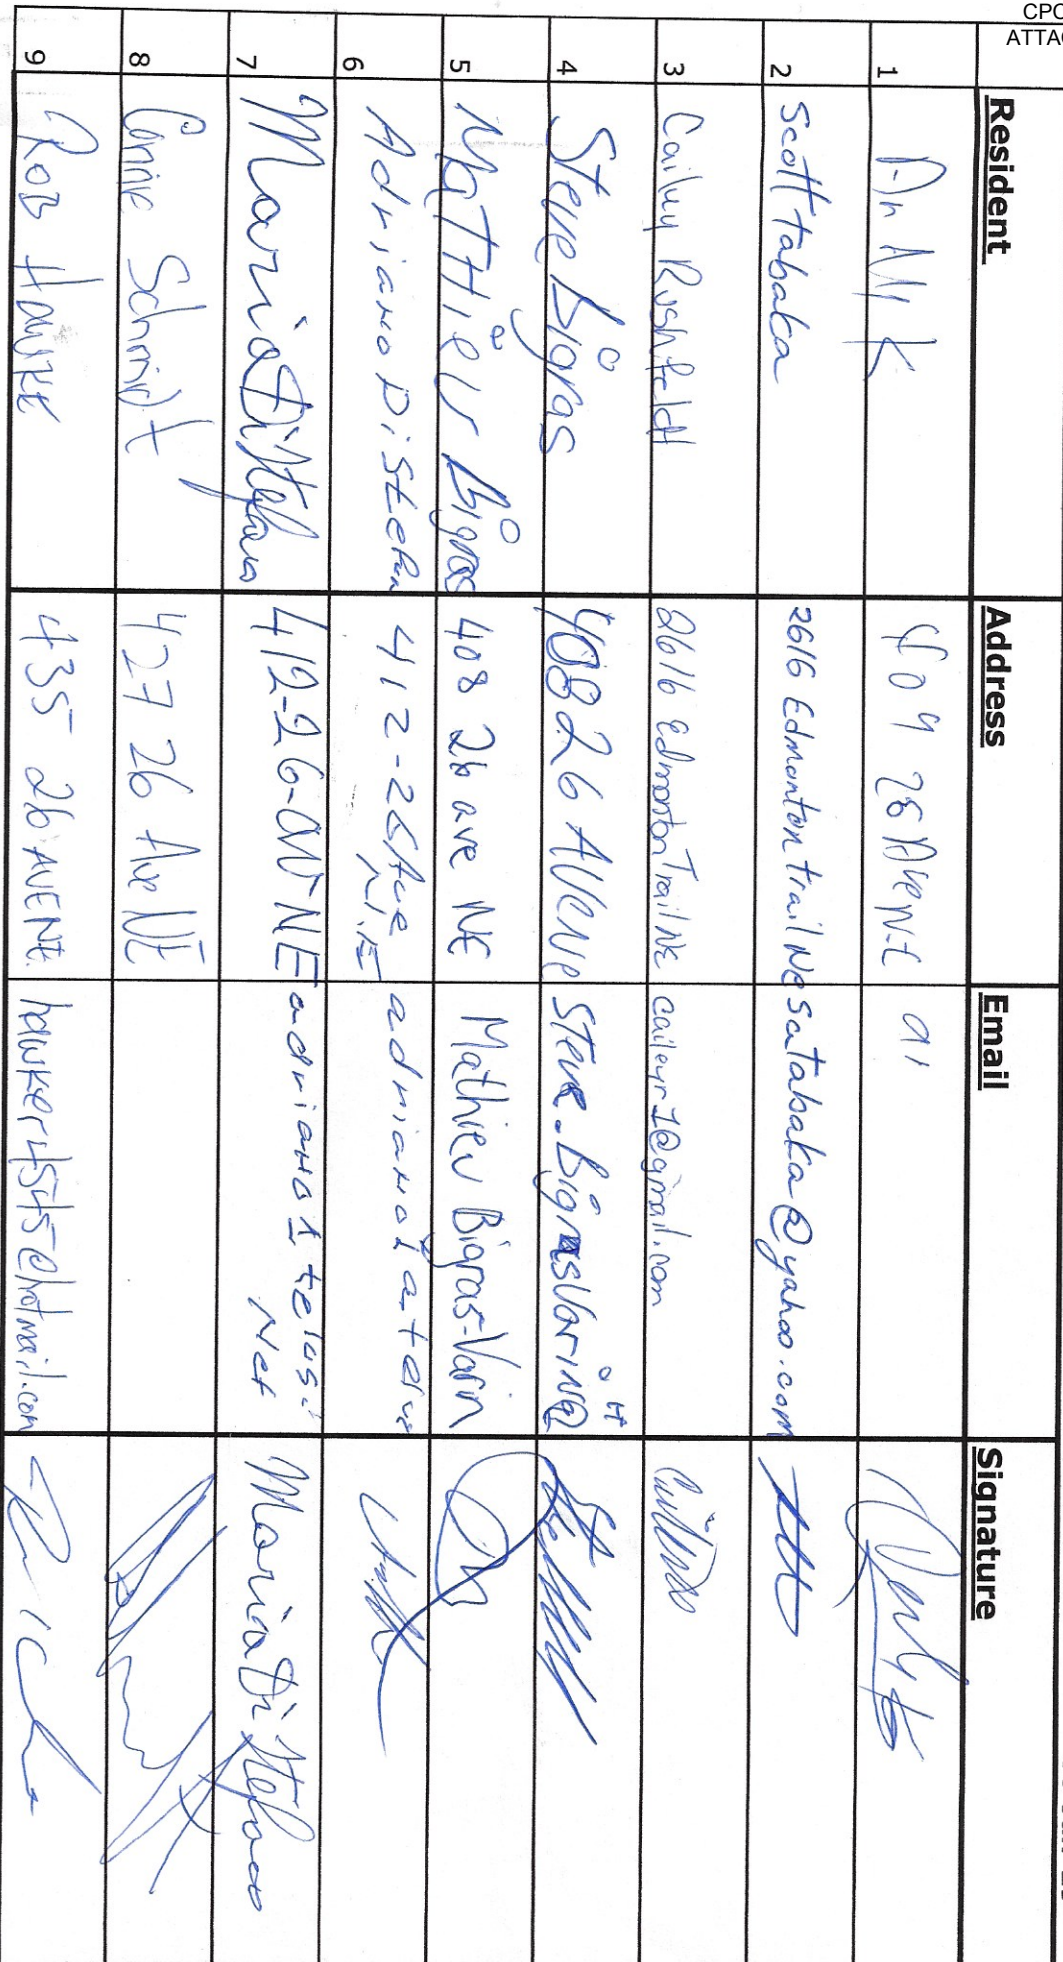 CPC
ATTAC
Resident Address Email Signature
1
2 Scott tabaka 2616 Edmonton trail NE satabaka@yahoo.com
3 Cailey Rushfeldt 2616 Edmonton Trail NE caileyr1@gmail.com
4 Steve Bigras 408 26 AVENUE
5 MATTHIEU Bigras 408 26 ave NE Mathieu Bigras-Varin
6 Adriano DiStefan 412-26 Ave N.E
7 Maria DiStefano 412-26-AV-NE adriano1 telus. Net Maria DiStefano
8 Connie Schmidt 427 26 Ave NE
9 ROB HAWKE 435 26 AVE NE. hawker4545@hotmail.com